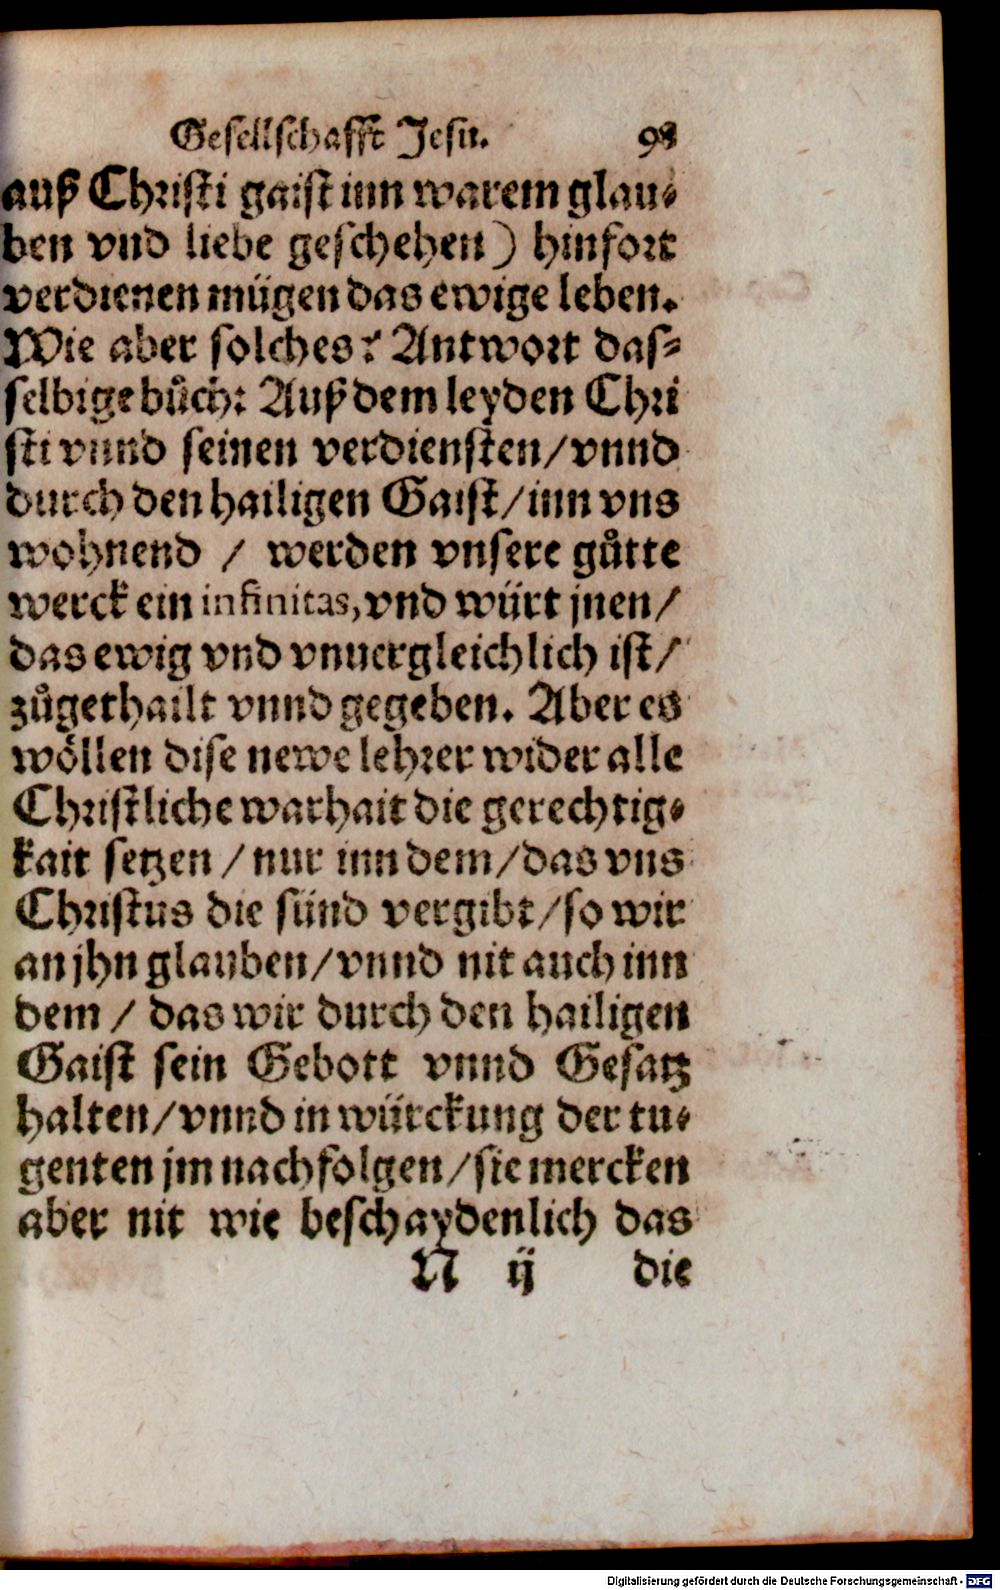 Gesellschafft Jesu. 98
auß Christi gaist inn warem glau-
ben vnd liebe geschehen) hinfort
verdienen mügen das ewige leben.
Wie aber solches? Antwort das-
selbige bůch: Auß dem leyden Chri
sti vnnd seinen verdiensten/vnnd
durch den hailigen Gaist/inn vns
wohnend / werden vnsere gůtte
werck ein infinitas, vnd würt jnen/
das ewig vnd vnuergleichlich ist/
zůgethailt vnnd gegeben. Aber es
wöllen dise newe lehrer wider alle
Christliche warhait die gerechtig-
kait setzen / nur inn dem/das vns
Christus die sünd vergibt/so wir
an jhn glauben/vnnd nit auch inn
dem / das wir durch den hailigen
Gaist sein Gebott vnnd Gesatz
halten/vnnd in würckung der tu-
genten jm nachfolgen/sie mercken
aber nit wie beschaydenlich das
N ij die
Digitalisierung gefördert durch die Deutsche Forschungsgemeinschaft - DFG